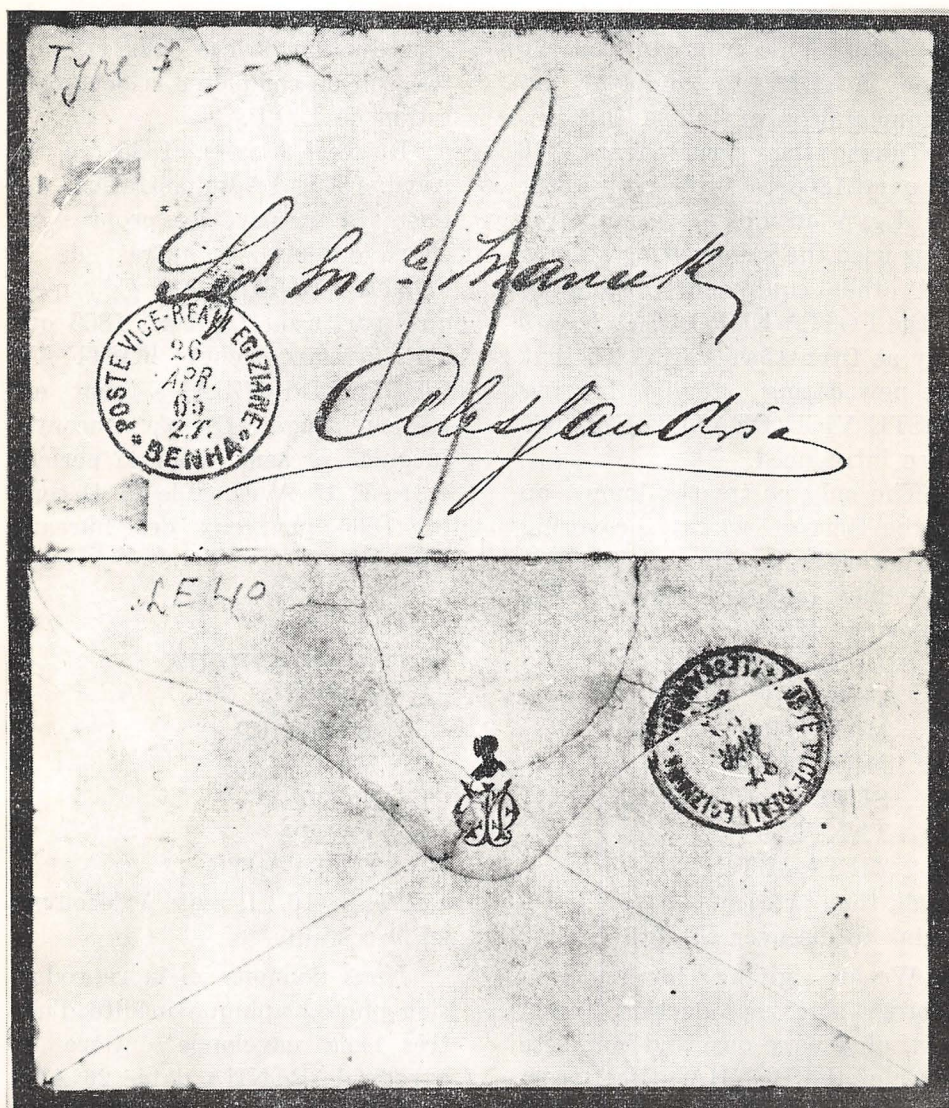 Type 7
1
Sid. Mce Manuk
Alessandria
POSTE VICE-REALI EGIZIANE
26
APR.
65
2.T.
BENHA
LE 40
POSTE VICE-REALI EGIZIANE